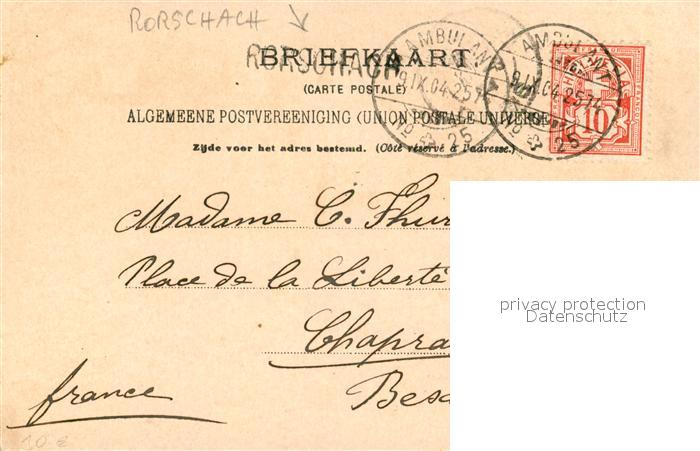 RORSCHACH
RORSCHACH
BRIEFKAART
(CARTE POSTALE)
ALGEMEENE POSTVEREENIGING (UNION POSTALE UNIVERSE
Zijde voor het adres bestemd. (Côté réservé à l'adresse.)
AMBULANT
9.IX.04.25
25
AMBULANT
9.IX.04.25
25
10
Madame C. Thur
Place de la Liberté
Chapra
Besa
france
10 €
privacy protection
Datenschutz